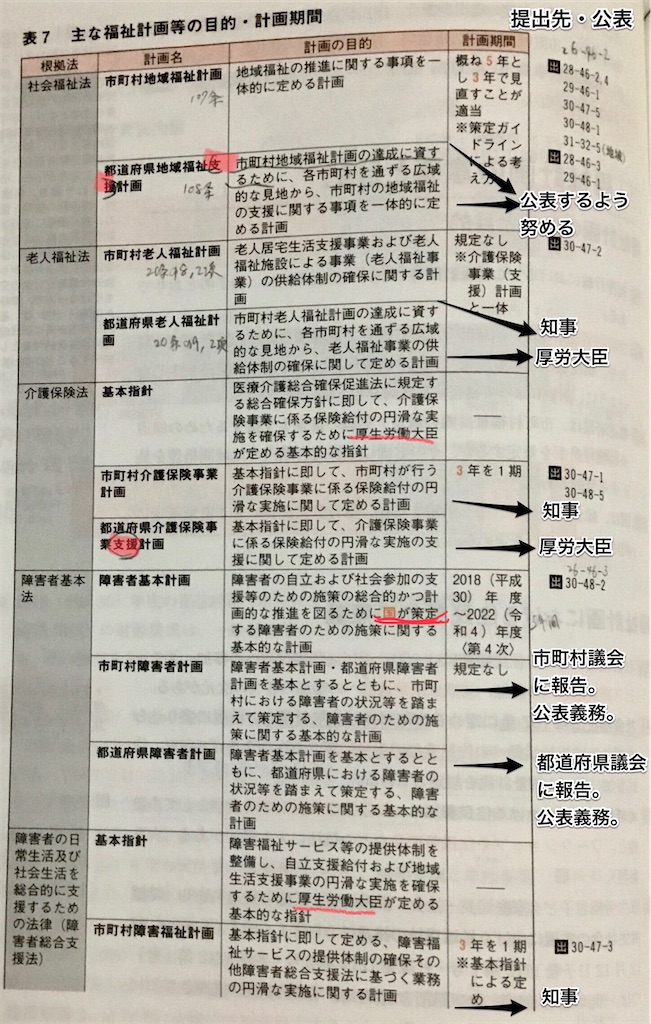 表7 主な福祉計画等の目的・計画期間
提出先・公表
根拠法
計画名
計画の目的
計画期間
社会福祉法
市町村地域福祉計画
107条
地域福祉の推進に関する事項を一
体的に定める計画
概ね5年と
し3年で見
直すことが
適当
※策定ガイ
ドライン
による考
え方
26-46-2
出 28-46-2,4
29-46-1
30-47-5
30-48-1
31-32-5(地域)
出 28-46-3
29-46-1
都道府県地域福祉支
援計画
108条
市町村地域福祉計画の達成に資す
るために、各市町村を通ずる広域
的な見地から、市町村の地域福祉
の支援に関する事項を一体的に定
める計画
公表するよう
努める
老人福祉法
市町村老人福祉計画
20条の8,2項
老人居宅生活支援事業および老人
福祉施設による事業(老人福祉事
業)の供給体制の確保に関する計
画
規定なし
※介護保険
事業(支
援)計画
と一体
出 30-47-2
都道府県老人福祉計
画
20条の9,2項
市町村老人福祉計画の達成に資す
るために、各市町村を通ずる広域
的な見地から、老人福祉事業の供
給体制の確保に関して定める計画
知事
厚労大臣
介護保険法
基本指針
医療介護総合確保促進法に規定す
る総合確保方針に即して、介護保
険事業に係る保険給付の円滑な実
施を確保するために厚生労働大臣
が定める基本的な指針
市町村介護保険事業
計画
基本指針に即して、市町村が行う
介護保険事業に係る保険給付の円
滑な実施に関して定める計画
3年を1期
出 30-47-1
30-48-5
知事
都道府県介護保険事
業支援計画
基本指針に即して、介護保険事業
に係る保険給付の円滑な実施の支
援に関して定める計画
厚労大臣
障害者基本
法
障害者基本計画
障害者の自立および社会参加の支
援等のための施策の総合的かつ計
画的な推進を図るために国が策定
する障害者のための施策に関する
基本的な計画
2018(平成
30)年度
~2022(令
和4)年度
(第4次)
5年間
26-46-3
出 30-48-2
市町村障害者計画
障害者基本計画・都道府県障害者
計画を基本とするとともに、市町
村における障害者の状況等を踏ま
えて策定する、障害者のための施
策に関する基本的な計画
規定なし
市町村議会
に報告。
公表義務。
都道府県障害者計画
障害者基本計画を基本とするとと
もに、都道府県における障害者の
状況等を踏まえて策定する、障害
者のための施策に関する基本的な
計画
都道府県議会
に報告。
公表義務。
障害者の日
常生活及び
社会生活を
総合的に支
援するため
の法律(障
害者総合支
援法)
基本指針
障害福祉サービス等の提供体制を
整備し、自立支援給付および地域
生活支援事業の円滑な実施を確保
するために厚生労働大臣が定める
基本的な指針
市町村障害福祉計画
基本指針に即して定める、障害福
祉サービスの提供体制の確保その
他障害者総合支援法に基づく業務
の円滑な実施に関する計画
3年を1期
※基本指針
による定
め
出 30-47-3
知事